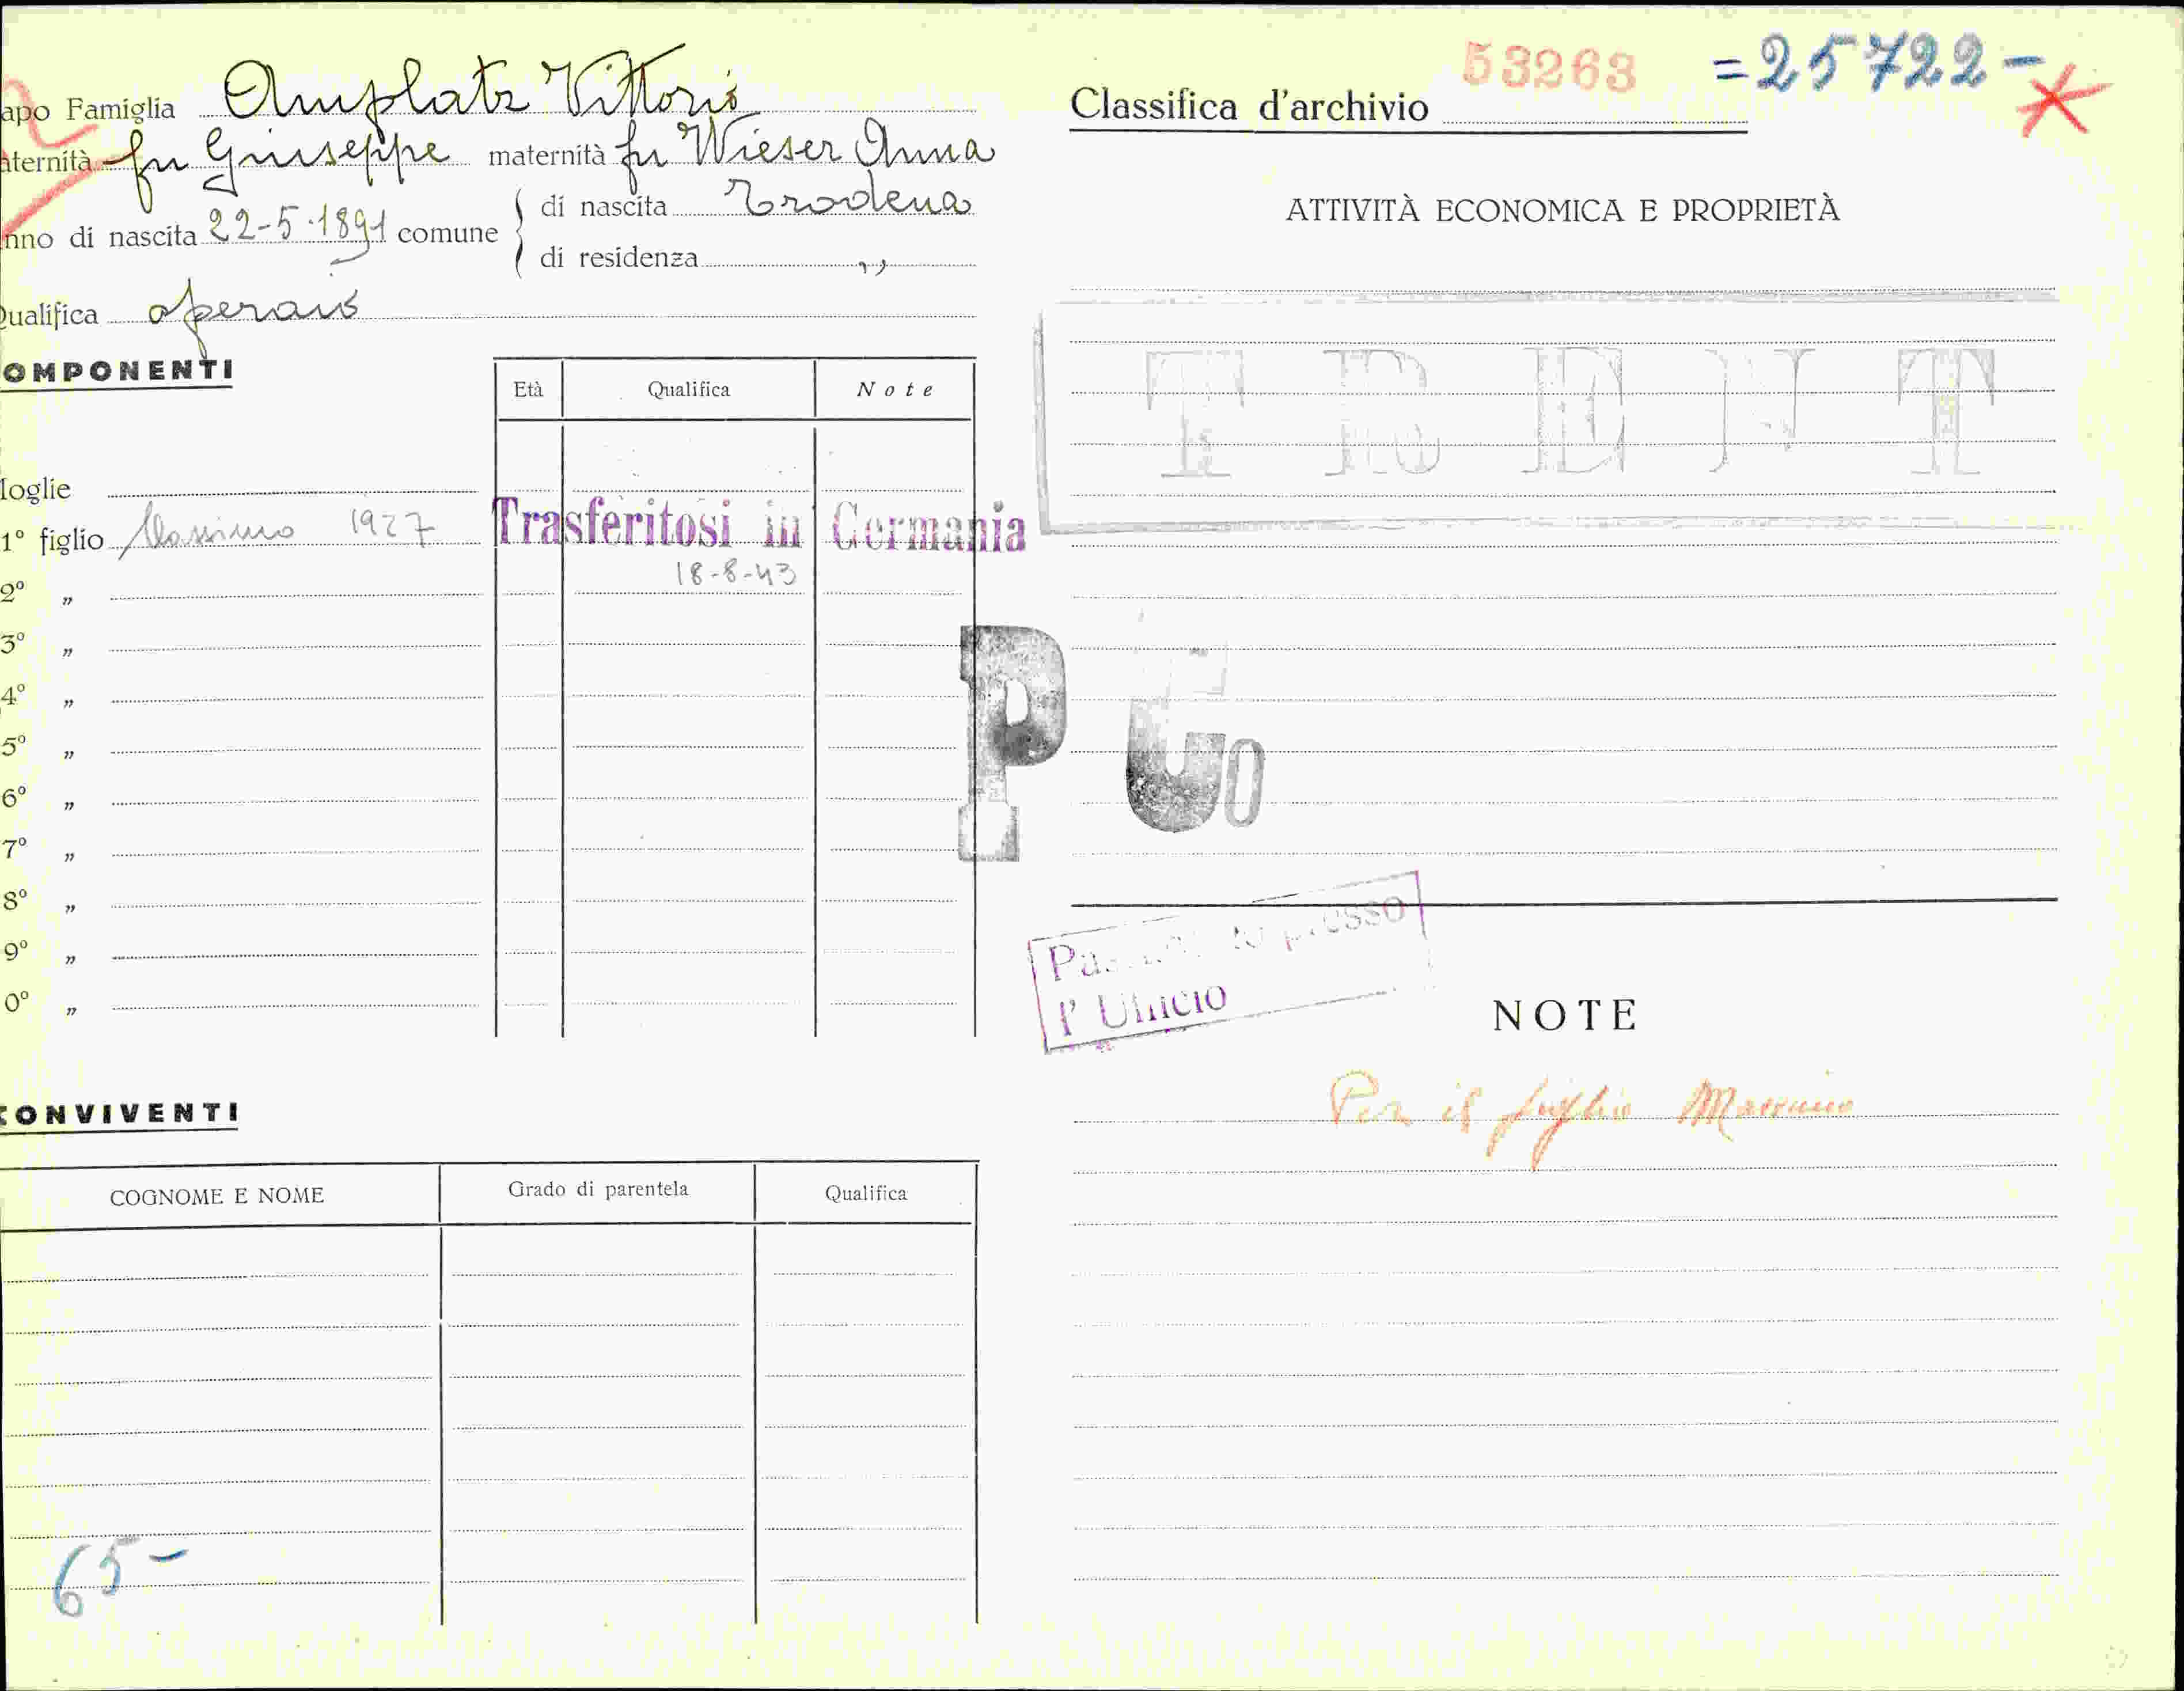 apo Famiglia Amplatz Vittorio
aternità fu Giuseppe maternità fu Wieser Anna
nno di nascita 22-5-1891 comune di nascita Trodena
di residenza „
Qualifica operaio
OMPONENTI
Età Qualifica Note
loglie
1° figlio Massimo 1927 Trasferitosi in Germania
18-8-43
2° „
3° „
4° „
5° „
6° „
7° „
8° „
9° „
0° „
CONVIVENTI
COGNOME E NOME Grado di parentela Qualifica
65-
53263 =25722-
Classifica d'archivio
ATTIVITÀ ECONOMICA E PROPRIETÀ
TRENT
P
presso
l' Ufficio
NOTE
Per il figlio Massimo